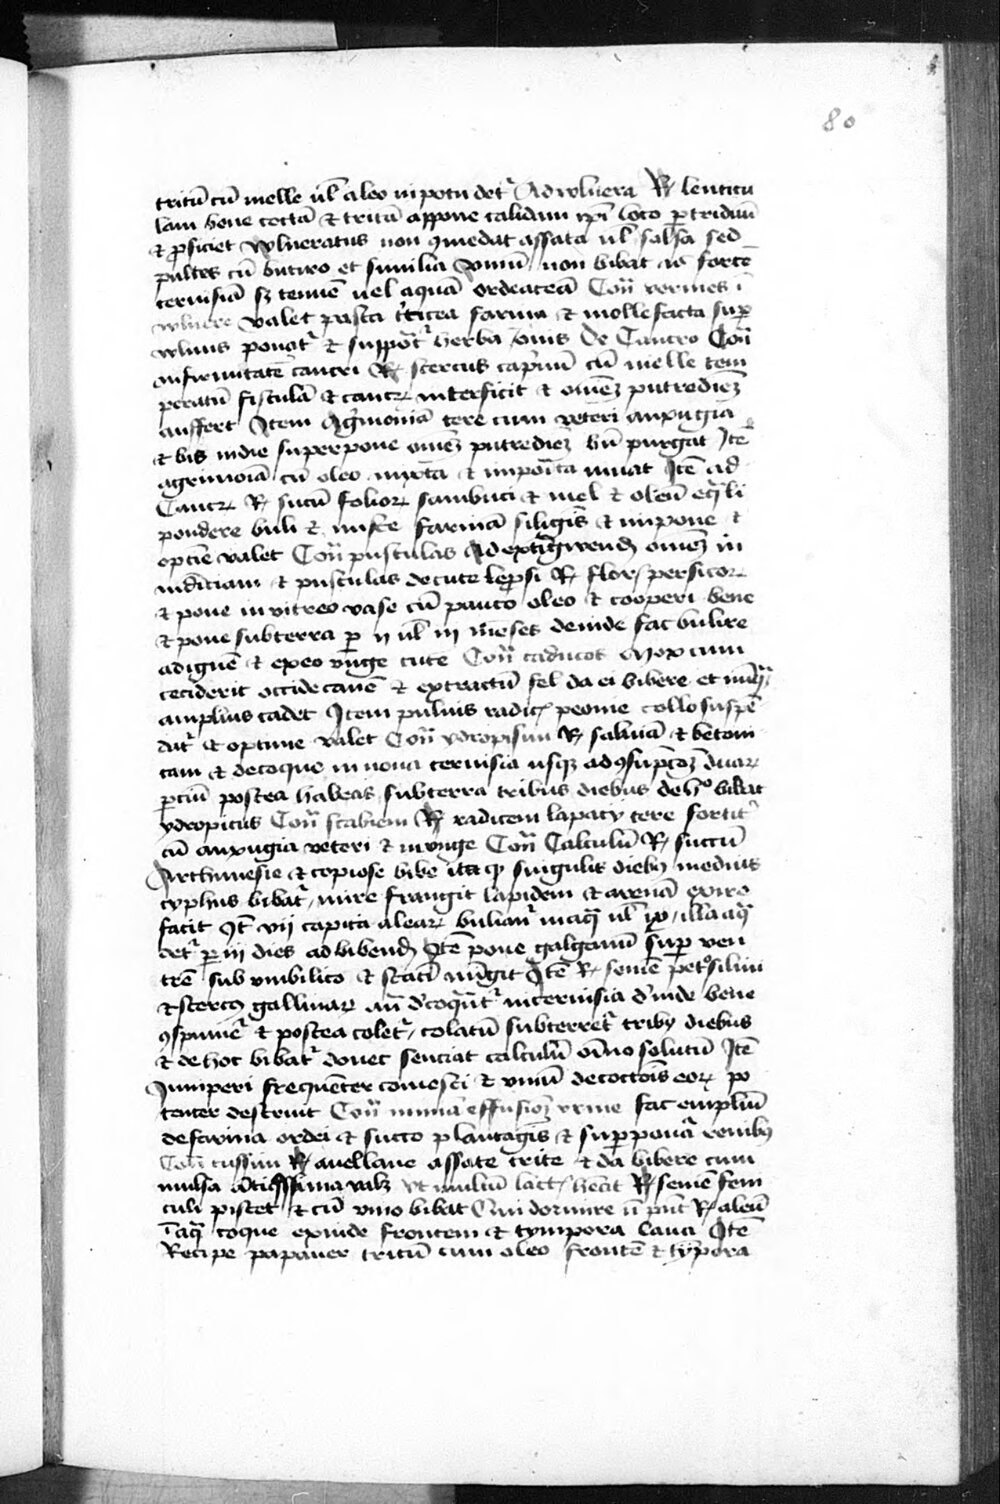 80
tritū cū melle ul̄ aleo in potu det᷑ Ad wlnera R̸ lenticu
lam bene coctā & tritā appone calidum ip̄i loco ꝑ triduū
& ꝓficiet wlneratus non ꝯmedat assata ul̄ salsa sed
pultes cū butiro et similia vinum non bibat nec forte
ceruisiā sꝫ tenuē uel aquā ordeaceā Cōn̄ vermes ī
wlnere valet pasta t'ticea farina & mollefacta suꝑ
wlnus ponat᷑ & suppōt᷑ herba iouis De Cancro Cōn̄
infirmitatē cancri R̸ stercus capnū cū melle tem
peratū fistulā & cancꝝ interficit & omēꝫ putredīeꝫ
auffert Item Agrimoniā tere cum veteri auxugia
& bis in die superpone omēꝫ putredīeꝫ purgat Itē
agrimoiā cū oleo mixta & imposita iuuat Itē ad
Cancꝝ R̸ sucū folioꝝ sambuci & mel & oleū eq̄li
pondere buli & misce farinā siliginis & impone &
optīe valet Cōn̄ pustulas Ad extīgwend omēꝫ in
mūdiciam & pustulas de cute leprosi R̸ flor persicoꝝ
& pone in vitreo vase cū pauco oleo & cooperi bene
& pone sub terra ꝑ ij ul̄ iij mēses deinde fac bulire
ad ignē & ex eo vnge cutē Cōn̄ caducos Mox cum
ceciderit occide canē & extractū fel da ei bibere et nūq̄ꝫ
amplius cadet Item puluis radicꝭ peonie collo suspē
dat᷑ & optime valet Cōn̄ ydropisim R̸ saluiā & betoni
cam & decoque in noua ceruisia usqꝫ ad ꝯsūpcoꝫ duaꝝ
ꝑciū postea habeas subterra tribus diebus de hᵒ bibat
ydropicus Cōn̄ scabiem R̸ radicem lapacij tere fortit᷑
cū auxugia veteri & inunge Cōn̄ Calculū R̸ succū
Arthimesie & copiose bibe ita ꝙ singulis diebꝫ medius
cyphus bibat᷑ mire frangit lapidem & arenā exire
facit It̄ vij capita aleaꝝ buliant᷑ in aq̄ ul̄ ix illa aq̄
det᷑ ꝑ iij dies ad bibend Itē pone galganū suꝑ ven
trē sub vmbilico & statī mīgit Itē R̸ semē pet'silini
& stercꝰ gallinaꝝ deinde bene
& postea colet᷑ colatū subterret᷑ tribꝫ diebus
& de hoc bibat᷑ donec senciat calculū oīno solutū Itē
Iuniperi frequēter comesti & vinū decoctiōis eoꝝ po
tenter destruit Cōn̄ nimiā effusioꝫ vrine fac emplm̄
de farina ordei & succo plantaginis & suppōnā renibꝫ
Cōn̄ tussim R̸ auellane assate trite & da bibere cum
mulsa R̸ semē feni
culi pistet & cū vino bibat Qui dormire n̄ pn̄t R̸ aleū
ī aq̄ coque exinde frontem & tympora laua Itē
Recipe papauer tritū cum oleo frontē & tȳpora